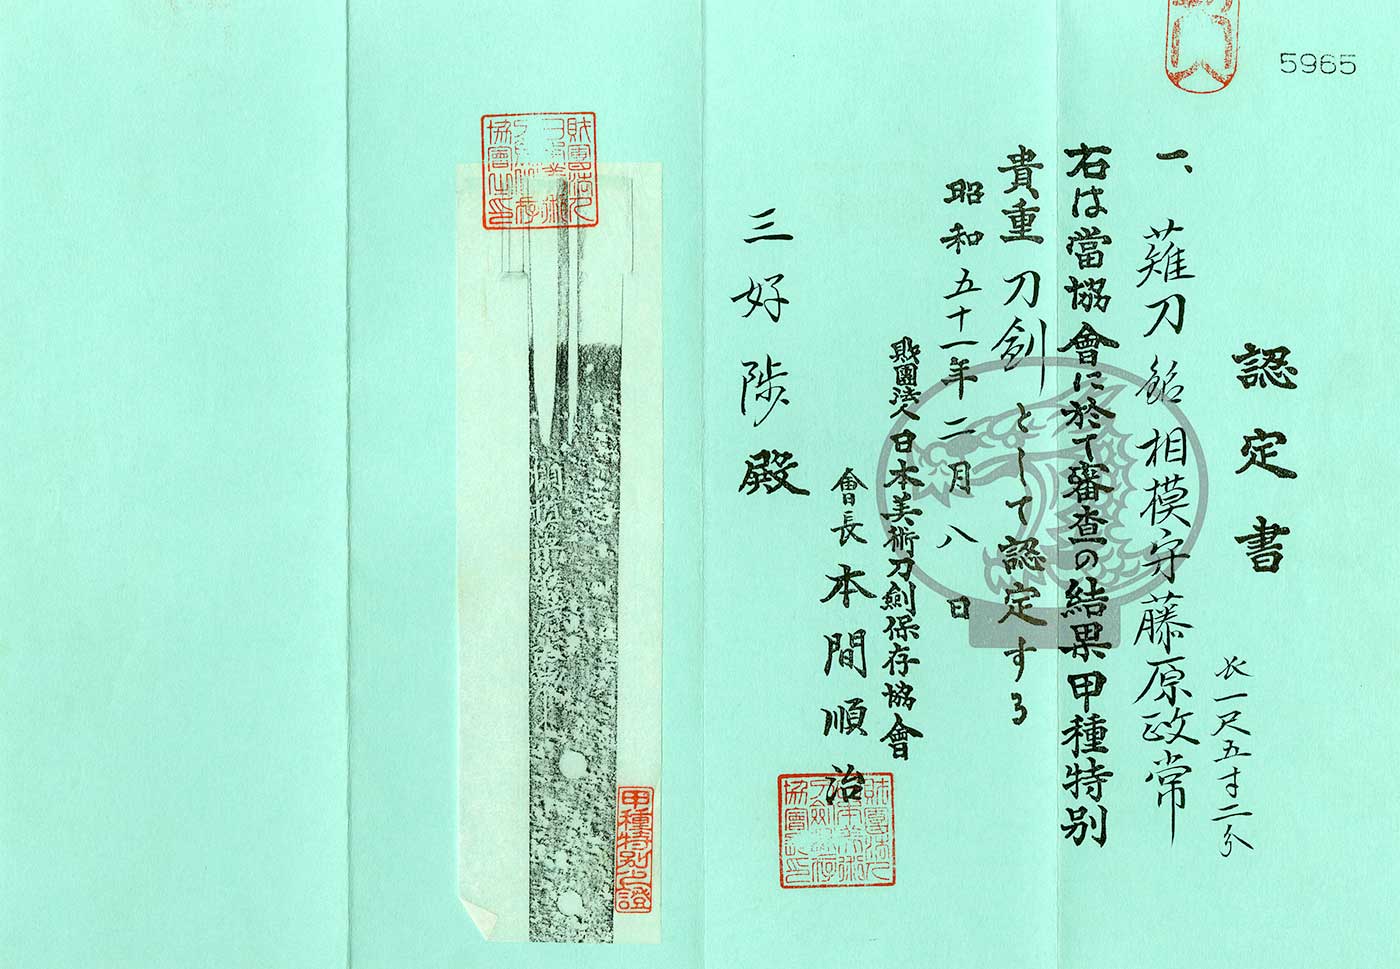 5965
認定書
一、薙刀銘相模守藤原政常
長一尺五寸二分
右は當協會に於て審査の結果甲種特別
貴重刀劍として認定する
昭和五十一年二月八日
財團法人日本美術刀劍保存協會
會長本間順治
三好陟殿
甲種特別之證